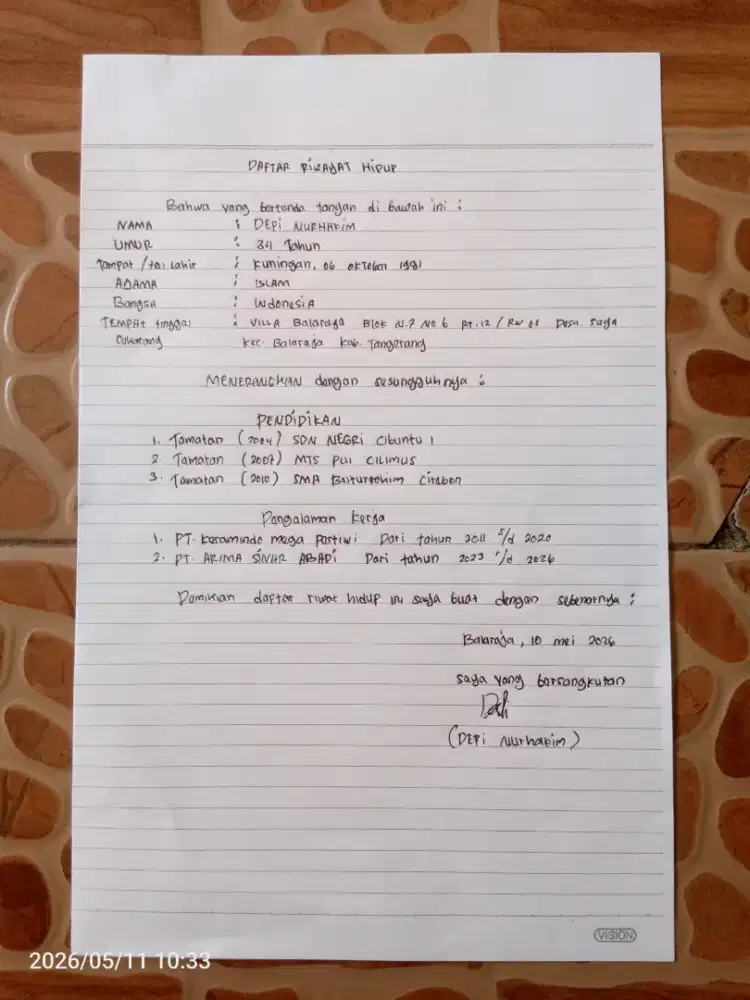 DAFTAR RIWAYAT HIDUP
Bahwa yang bertanda tangan di bawah ini :
NAMA : DEPI NURHAKIM
UMUR : 34 Tahun
Tempat / tgl Lahir : Kuningan, 06 OKTOBER 1991
AGAMA : ISLAM
Bangsa : Indonesia
TEMPAt tinggal : VILLA Balaraja Blok N.7 No 6 Rt.12 / RW 05 Desa. Saga
Sekarang Kec. Balaraja Kab. Tangerang
MENERANGKAN dengan sesungguhnya :
PENDIDIKAN
1. Tamatan (2004) SDN NEGRI Cibuntu 1
2. Tamatan (2007) MTS PUI CILIMUS
3. Tamatan (2010) SMA Baiturrohim Cirebon
Pengalaman kerja
1. PT. Keramindo mega pertiwi Dari tahun 2011 s/d 2020
2. PT. ARIMA SINAR ABADI Dari tahun 2023 s/d 2026
Demikian daptar riwat hidup ini saya buat dengan sebenarnya ;
Balaraja, 10 mei 2026
saya yang bersangkutan
(DEPi Nurhakim)
VISION
2026/05/11 10:33